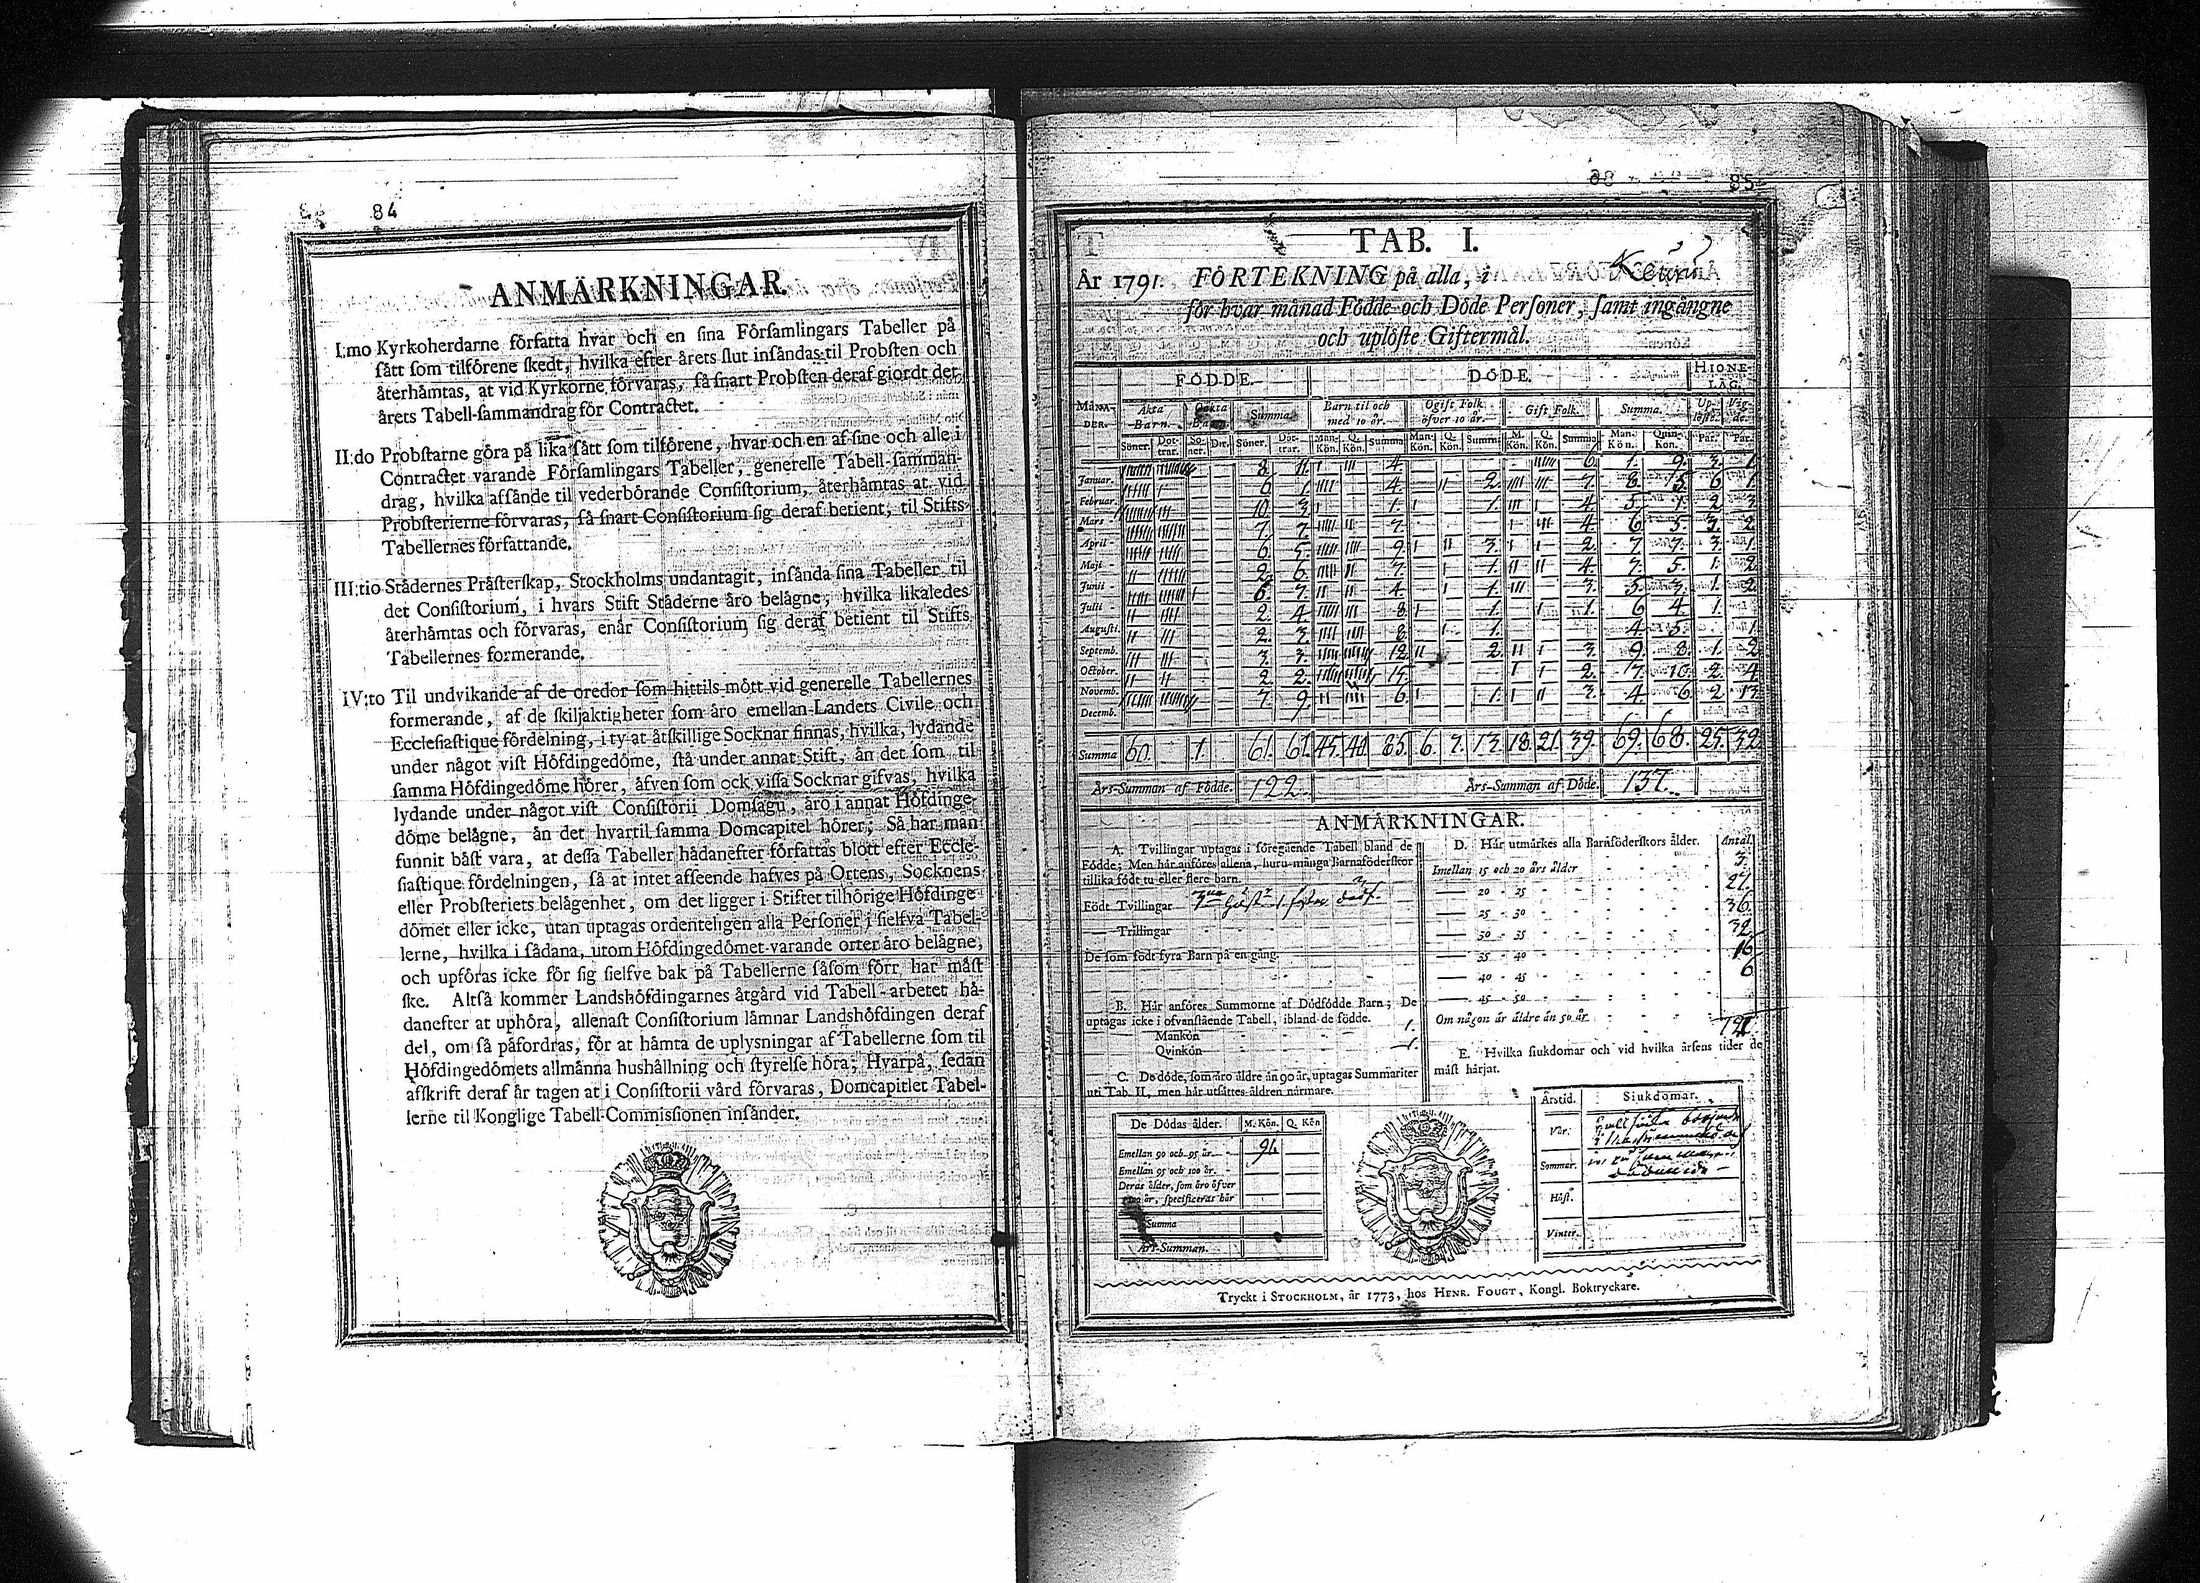 84
ANMÄRKNINGAR.
I:mo Kyrkoherdarne författa hvar och en sina Församlingars Tabeller på
sätt som tilförene skedt, hvilka efter årets slut insändas til Probsten och
återhämtas, at vid Kyrkorne förvaras, så snart Probsten deraf giordt det
årets Tabell-sammandrag för Contractet.
II:do Probstarne göra på lika sätt som tilförene, hvar och en af sine och alle i
Contractet varande Församlingars Tabeller, generelle Tabell-samman-
drag, hvilka affände til vederbörande Consistorium, återhämtas at vid
Probsterierne förvaras, så snart Consistorium sig deraf betient, til Stifts-
Tabellernes författande.
III:tio Städernes Prästerskap, Stockholms undantagit, insända sina Tabeller til
det Consistorium, i hvars Stift Städerne äro belägne, hvilka likaledes
återhämtas och förvaras, enär Consistorium sig deraf betient til Stifts
Tabellernes formerande.
IV:to Til undvikande af de oredor som hittils mött vid generelle Tabellernes
formerande, af de skiljaktigheter som äro emellan Landets Civile och
Ecclesiastique fördelning, i ty at åtskillige Socknar finnas, hvilka, lydande
under något vist Höfdingedöme, stå under annat Stift, än det som til
samma Höfdingedöme hörer, äfven som ock vissa Socknar gifvas, hvilka
lydande under något vist Consistorii Domsagu, äro i annat Höfdinge-
döme belägne, än det hvartil samma Domcapitel hörer; Så har man
funnit bäst vara, at dessa Tabeller hädanefter författas blott efter Eccle-
siastique fördelningen, så at intet afseende hafves på Ortens, Socknens
eller Probsteriets belägenhet, om det ligger i Stiftet tilhörige Höfdinge-
dömet eller icke, utan uptagas ordenteligen alla Personer i sielfva Tabel-
lerne, hvilka i sådana, utom Höfdingedömet varande orter äro belägne,
och upföras icke för sig sielfve bak på Tabellerne såsom förr har mäst
ske. Altså kommer Landshöfdingarnes åtgärd vid Tabell-arbetet hä-
danefter at uphöra, allenast Consistorium lämnar Landshöfdingen deraf
del, om så påfordras, för at hämta de uplysningar af Tabellerne som til
Höfdingedömets allmänna hushållning och styrelse höra; Hvarpå, sedan
afskrift deraf är tagen at i Consistorii värd förvaras, Domcapitlet Tabel-
lerne til Konglige Tabell-Commissionen insänder.
85
TAB. I.
År 1791. FÖRTEKNING på alla, i
för hvar månad Födde och Döde Personer, samt ingångne
och uplöste Giftermål.
FÖDDE. DÖDE. HIONE-LAG.
MÅNADER. Äkta Barn. Oäkta Barn. Summa. Barn til och med 10 år. Ogift Folk öfver 10 år. Gift Folk. Summa. Uplöste. Vigde.
Söner. Dottrar. Söner. Dtr. Söner. Dottrar. Man-Kön. Q. Kön. Summa Man-Kön. Q. Kön. Summa M. Kön. Q. Kön. Summa Man-Kön. Quin-Kön. Par. Par.
Januar. 8. 11. 4 6. 1. 9. 3. 1
Februar. 6 1 4. 2. 7. 8. 5. 6 1
Mars 10 3 1. 1. 4. 5. 1. 2 3
April 7. 7. 7. 4. 6 5. 3. 2
Maji 6. 5. 9. 3. 2. 7. 7. 3. 1
Junii 2. 6. 7. 1. 4. 7. 5. 1. 2
Julii 6 7. 4. 1. 3. 5. 3. 1. 2
Augusti. 2. 4. 8. 1. 1. 6 4. 1.
Septemb. 2. 3. 8. 1. 4. 5. 1
October. 3. 3. 12. 2. 3. 9. 8. 1. 2
Novemb. 2. 2. 15. 2. 7. 10. 2. 4
Decemb. 7. 9. 6. 1. 3. 4. 6 2 13
Summa 60. 1. 61. 61. 45. 40. 85. 6. 7. 13. 18. 21. 39. 69. 68. 25. 32
Års-Summan af Födde. 122. Års-Summan af Döde. 137.
ANMÄRKNINGAR.
A. Tvillingar uptagas i föregående Tabell bland de
Födde; Men här anföres allena, huru många Barnaföderskor
tillika födt tu eller flere barn.
Födt Tvillingar
— Trillingar
De som födt fyra Barn på en gång.
B. Här anföres Summorne af Dödfödde Barn; De
uptagas icke i ofvanstående Tabell, ibland de födde.
Mankön 1.
Qvinkön 1.
C. De döde, som äro äldre än 90 år, uptagas Summariter
uti Tab. II., men här utsättes åldren närmare.
De Dödas ålder. M. Kön. Q. Kön
Emellan 90 och 95 år. 94.
Emellan 95 och 100 år.
Deras ålder, som äro öfver
100 år, specificeras här
Summa
Års-Summan.
D. Här utmärkes alla Barnföderskors ålder. Antal.
Emellan 15 och 20 års ålder 3.
— 20 - 25 27.
— 25 - 30 36.
— 30 - 35 32.
— 35 - 40 16
— 40 - 45 6
— 45 - 50
Om någon är äldre än 50 år
E. Hvilka siukdomar och vid hvilka årsens tider de
mäst härjat.
Årstid. Siukdomar.
Vår.
Sommar.
Höst.
Vinter.
Tryckt i STOCKHOLM, år 1773, hos HENR. FOUGT, Kongl. Boktryckare.